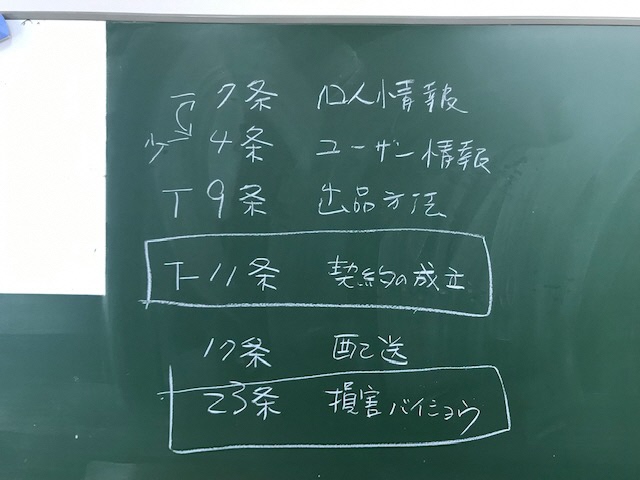 7条 個人情報
4条 ユーザー情報
T 9条 出品方法
T-11条 契約の成立
17条 配送
23条 損害バイショウ